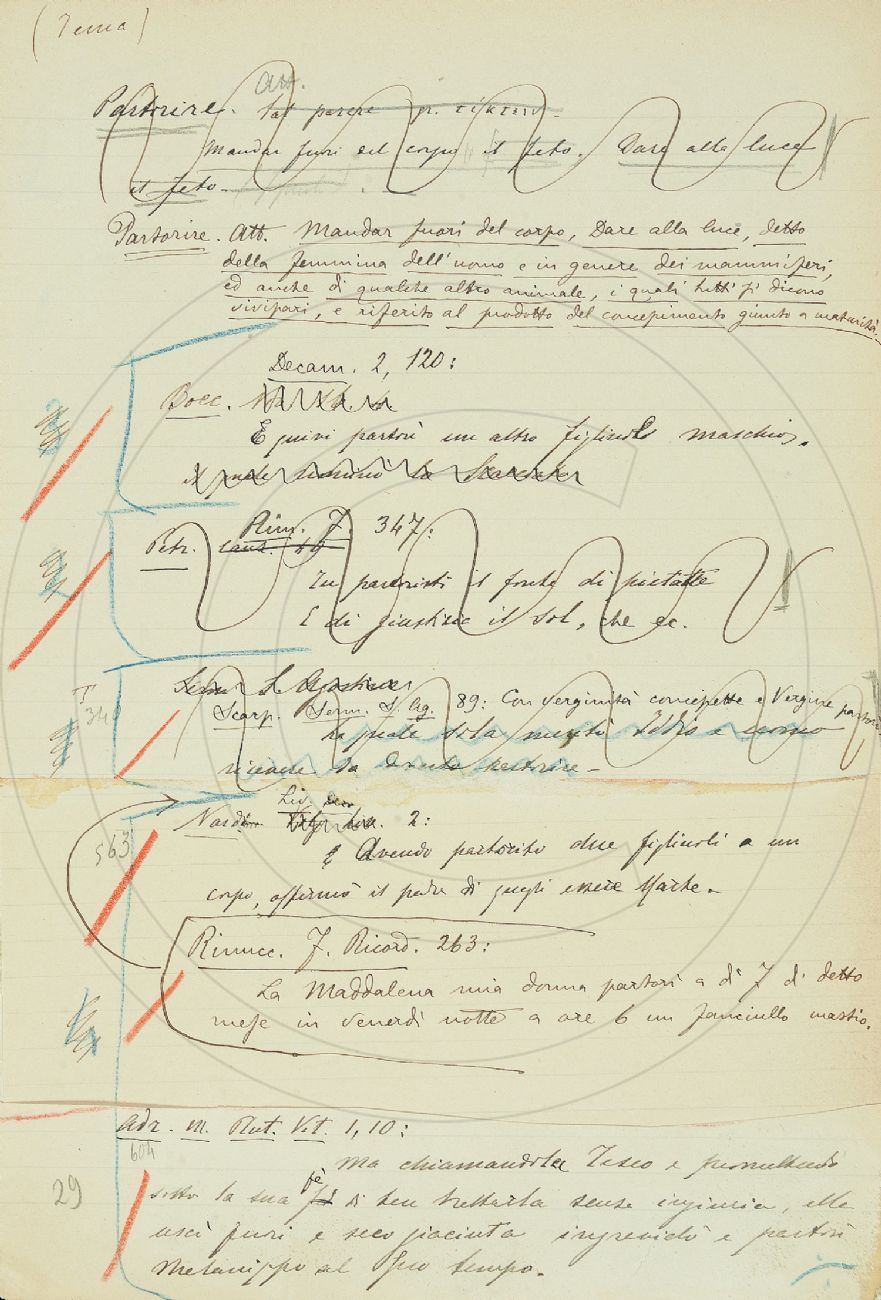 (Tema)
Att.
Partorire. Lat. parere gr. τίκτειν.
Mandar fuori del corpo il feto. Dare alla luce
il feto.
Partorire. Att. Mandar fuori del corpo, Dare alla luce, detto
della femmina dell'uomo e in genere dei mammiferi,
ed anche di qualche altro animale, i quali tutti si dicono
vivipari, e riferito al prodotto del concepimento giunto a maturità.
Decam. 2, 120:
Bocc.
E quivi partorì un altro figliuolo maschio,
il quale nominò lo Scacciato
Rim. 7. 347:
Petr.
Tu partoristi il fonte di pietate
E di giustizia il sol, che ec.
Serm. S. Agostino
T 34
Scarp. Serm. S. Ag. 89: Con verginità concepette e Vergine partorì
La quale sola meritò Iddio e uomo
ricevere
Liv. dec.
Nardi 2:
563
Avendo partorito due figliuoli a un
corpo, affermò il padre di quegli essere Marte.
Rinucc. F. Ricord. 263:
La Maddalena mia donna partorì a dì 7 di detto
mese in venerdì notte a ore 6 un fanciullo mastio.
Adr. M. Plut. Vit. 1, 10:
604
29
Ma chiamandola Teseo e promettendo
sotto la sua fè di ben trattarla senza ingiuria, ella
uscì fuori e seco giaciuta ingravidò e partorì
Melanippo al suo tempo.